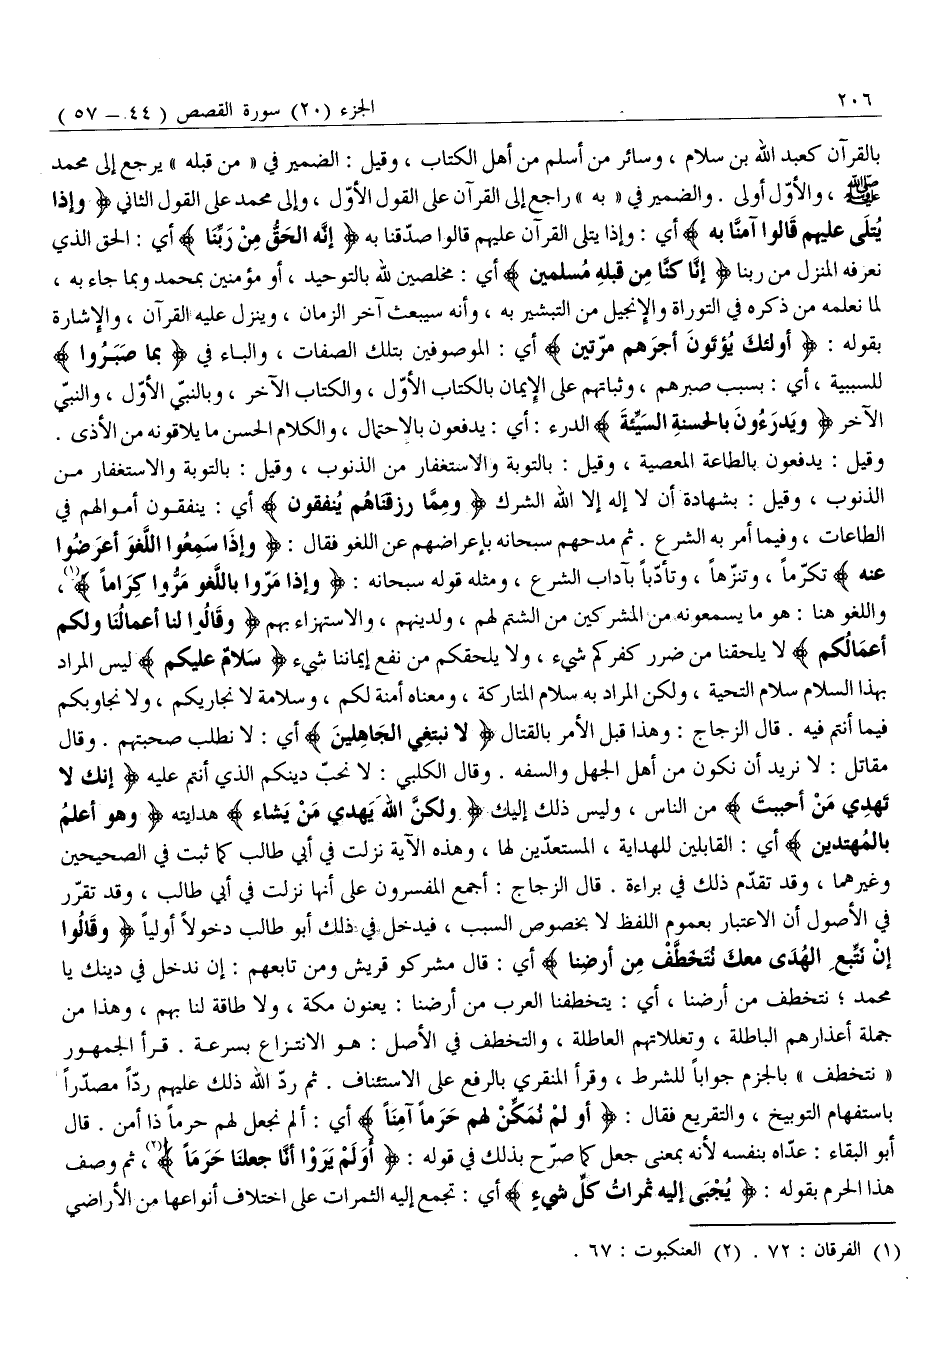 ٢٠٦
الجزء (٢٠) سورة القصص ( ٤٤ – ٥٧ )
بالقرآن كعبد الله بن سلام ، وسائر من أسلم من أهل الكتاب ، وقيل : الضمير في « من قبله » يرجع إلى محمد
ﷺ ، والأوّل أولى . والضمير في « به » راجع إلى القرآن على القول الأوّل ، وإلى محمد على القول الثاني ﴿ وإذا
يُتلَى عليهم قالُوا آمنَّا به ﴾ أي : وإذا يتلى القرآن عليهم قالوا صدّقنا به ﴿ إنَّه الحَقُّ مِنْ رَبِّنَا ﴾ أي : الحق الذي
نعرفه المنزل من ربنا ﴿ إنَّا كنَّا مِن قبلهِ مُسلمين ﴾ أي : مخلصين لله بالتوحيد ، أو مؤمنين بمحمد وبما جاء به ،
لما نعلمه من ذكره في التوراة والإنجيل من التبشير به ، وأنه سيبعث آخر الزمان ، وينزل عليه القرآن ، والإشارة
بقوله : ﴿ أولئكَ يُؤتَونَ أجرَهم مرّتين ﴾ أي : الموصوفين بتلك الصفات ، والباء في ﴿ بما صَبَرُوا ﴾
للسببية ، أي : بسبب صبرهم ، وثباتهم على الإيمان بالكتاب الأوّل ، والكتاب الآخر ، وبالنبيّ الأوّل ، والنبيّ
الآخر ﴿ ويَدرَءُونَ بالحسنةِ السيِّئةَ ﴾ الدرء : أي : يدفعون بالاحتمال ، والكلام الحسن ما يلاقونه من الأذى .
وقيل : يدفعون بالطاعة المعصية ، وقيل : بالتوبة والاستغفار من الذنوب ، وقيل : بالتوبة والاستغفار من
الذنوب ، وقيل : بشهادة أن لا إله إلا الله الشرك ﴿ ومِمَّا رزقنَاهُم يُنفقون ﴾ أي : ينفقون أموالهم في
الطاعات ، وفيما أمر به الشرع . ثم مدحهم سبحانه بإعراضهم عن اللغو فقال : ﴿ وإذَا سَمِعُوا اللَّغوَ أعرَضُوا
عنه ﴾ تكرّماً ، وتنزّهاً ، وتأدّباً بآداب الشرع ، ومثله قوله سبحانه : ﴿ وإذا مَرّوا باللَّغو مَرُّوا كِرَاماً ﴾(١) ،
واللغو هنا : هو ما يسمعونه من المشركين من الشتم لهم ، ولدينهم ، والاستهزاء بهم ﴿ وقَالُوا لنا أعمالُنَا ولكم
أعمَالُكم ﴾ لا يلحقنا من ضرر كفركم شيء ، ولا يلحقكم من نفع إيماننا شيء ﴿ سَلامٌ عليكم ﴾ ليس المراد
بهذا السلام سلام التحية ، ولكن المراد به سلام المتاركة ، ومعناه أمنة لكم ، وسلامة لا نجاريكم ، ولا نجاوبكم
فيما أنتم فيه . قال الزجاج : وهذا قبل الأمر بالقتال ﴿ لا نبتغِي الجَاهلينَ ﴾ أي : لا نطلب صحبتهم . وقال
مقاتل : لا نريد أن نكون من أهل الجهل والسفه . وقال الكلبي : لا نحبّ دينكم الذي أنتم عليه ﴿ إنك لا
تَهدِي مَنْ أحببتَ ﴾ من الناس ، وليس ذلك إليك ﴿ ولكنَّ اللهَ يَهدي مَنْ يَشاء ﴾ هدايته ﴿ وهو أعلمُ
بالمُهتدين ﴾ أي : القابلين للهداية ، المستعدّين لها ، وهذه الآية نزلت في أبي طالب كما ثبت في الصحيحين
وغيرهما ، وقد تقدّم ذلك في براءة . قال الزجاج : أجمع المفسرون على أنها نزلت في أبي طالب ، وقد تقرّر
في الأصول أن الاعتبار بعموم اللفظ لا بخصوص السبب ، فيدخل في ذلك أبو طالب دخولاً أولياً ﴿ وقَالُوا
إنْ نتَّبِع الهُدَى معكَ نُتخطَّفْ مِن أرضِنا ﴾ أي : قال مشركو قريش ومن تابعهم : إن ندخل في دينك يا
محمد ؛ نتخطف من أرضنا ، أي : يتخطفنا العرب من أرضنا : يعنون مكة ، ولا طاقة لنا بهم ، وهذا من
جملة أعذارهم الباطلة ، وتعللاتهم العاطلة ، والتخطف في الأصل : هو الانتزاع بسرعة . قرأ الجمهور
« نتخطف » بالجزم جواباً للشرط ، وقرأ المنقري بالرفع على الاستئناف . ثم ردّ الله ذلك عليهم ردّاً مصدّراً
باستفهام التوبيخ ، والتقريع فقال : ﴿ أو لمْ نُمكِّنْ لهم حَرَماً آمِنَاً ﴾ أي : ألم نجعل لهم حرماً ذا أمن . قال
أبو البقاء : عدّاه بنفسه لأنه بمعنى جعل كما صرّح بذلك في قوله : ﴿ أوَلَمْ يَرَوْا أنَّا جعلنَا حَرَمَاً ﴾(٢)، ثم وصف
هذا الحرم بقوله : ﴿ يُجْبَى إليه ثمراتُ كلِّ شيءٍ ﴾ أي : تجمع إليه الثمرات على اختلاف أنواعها من الأراضي
(١) الفرقان : ٧٢ . (٢) العنكبوت : ٦٧ .